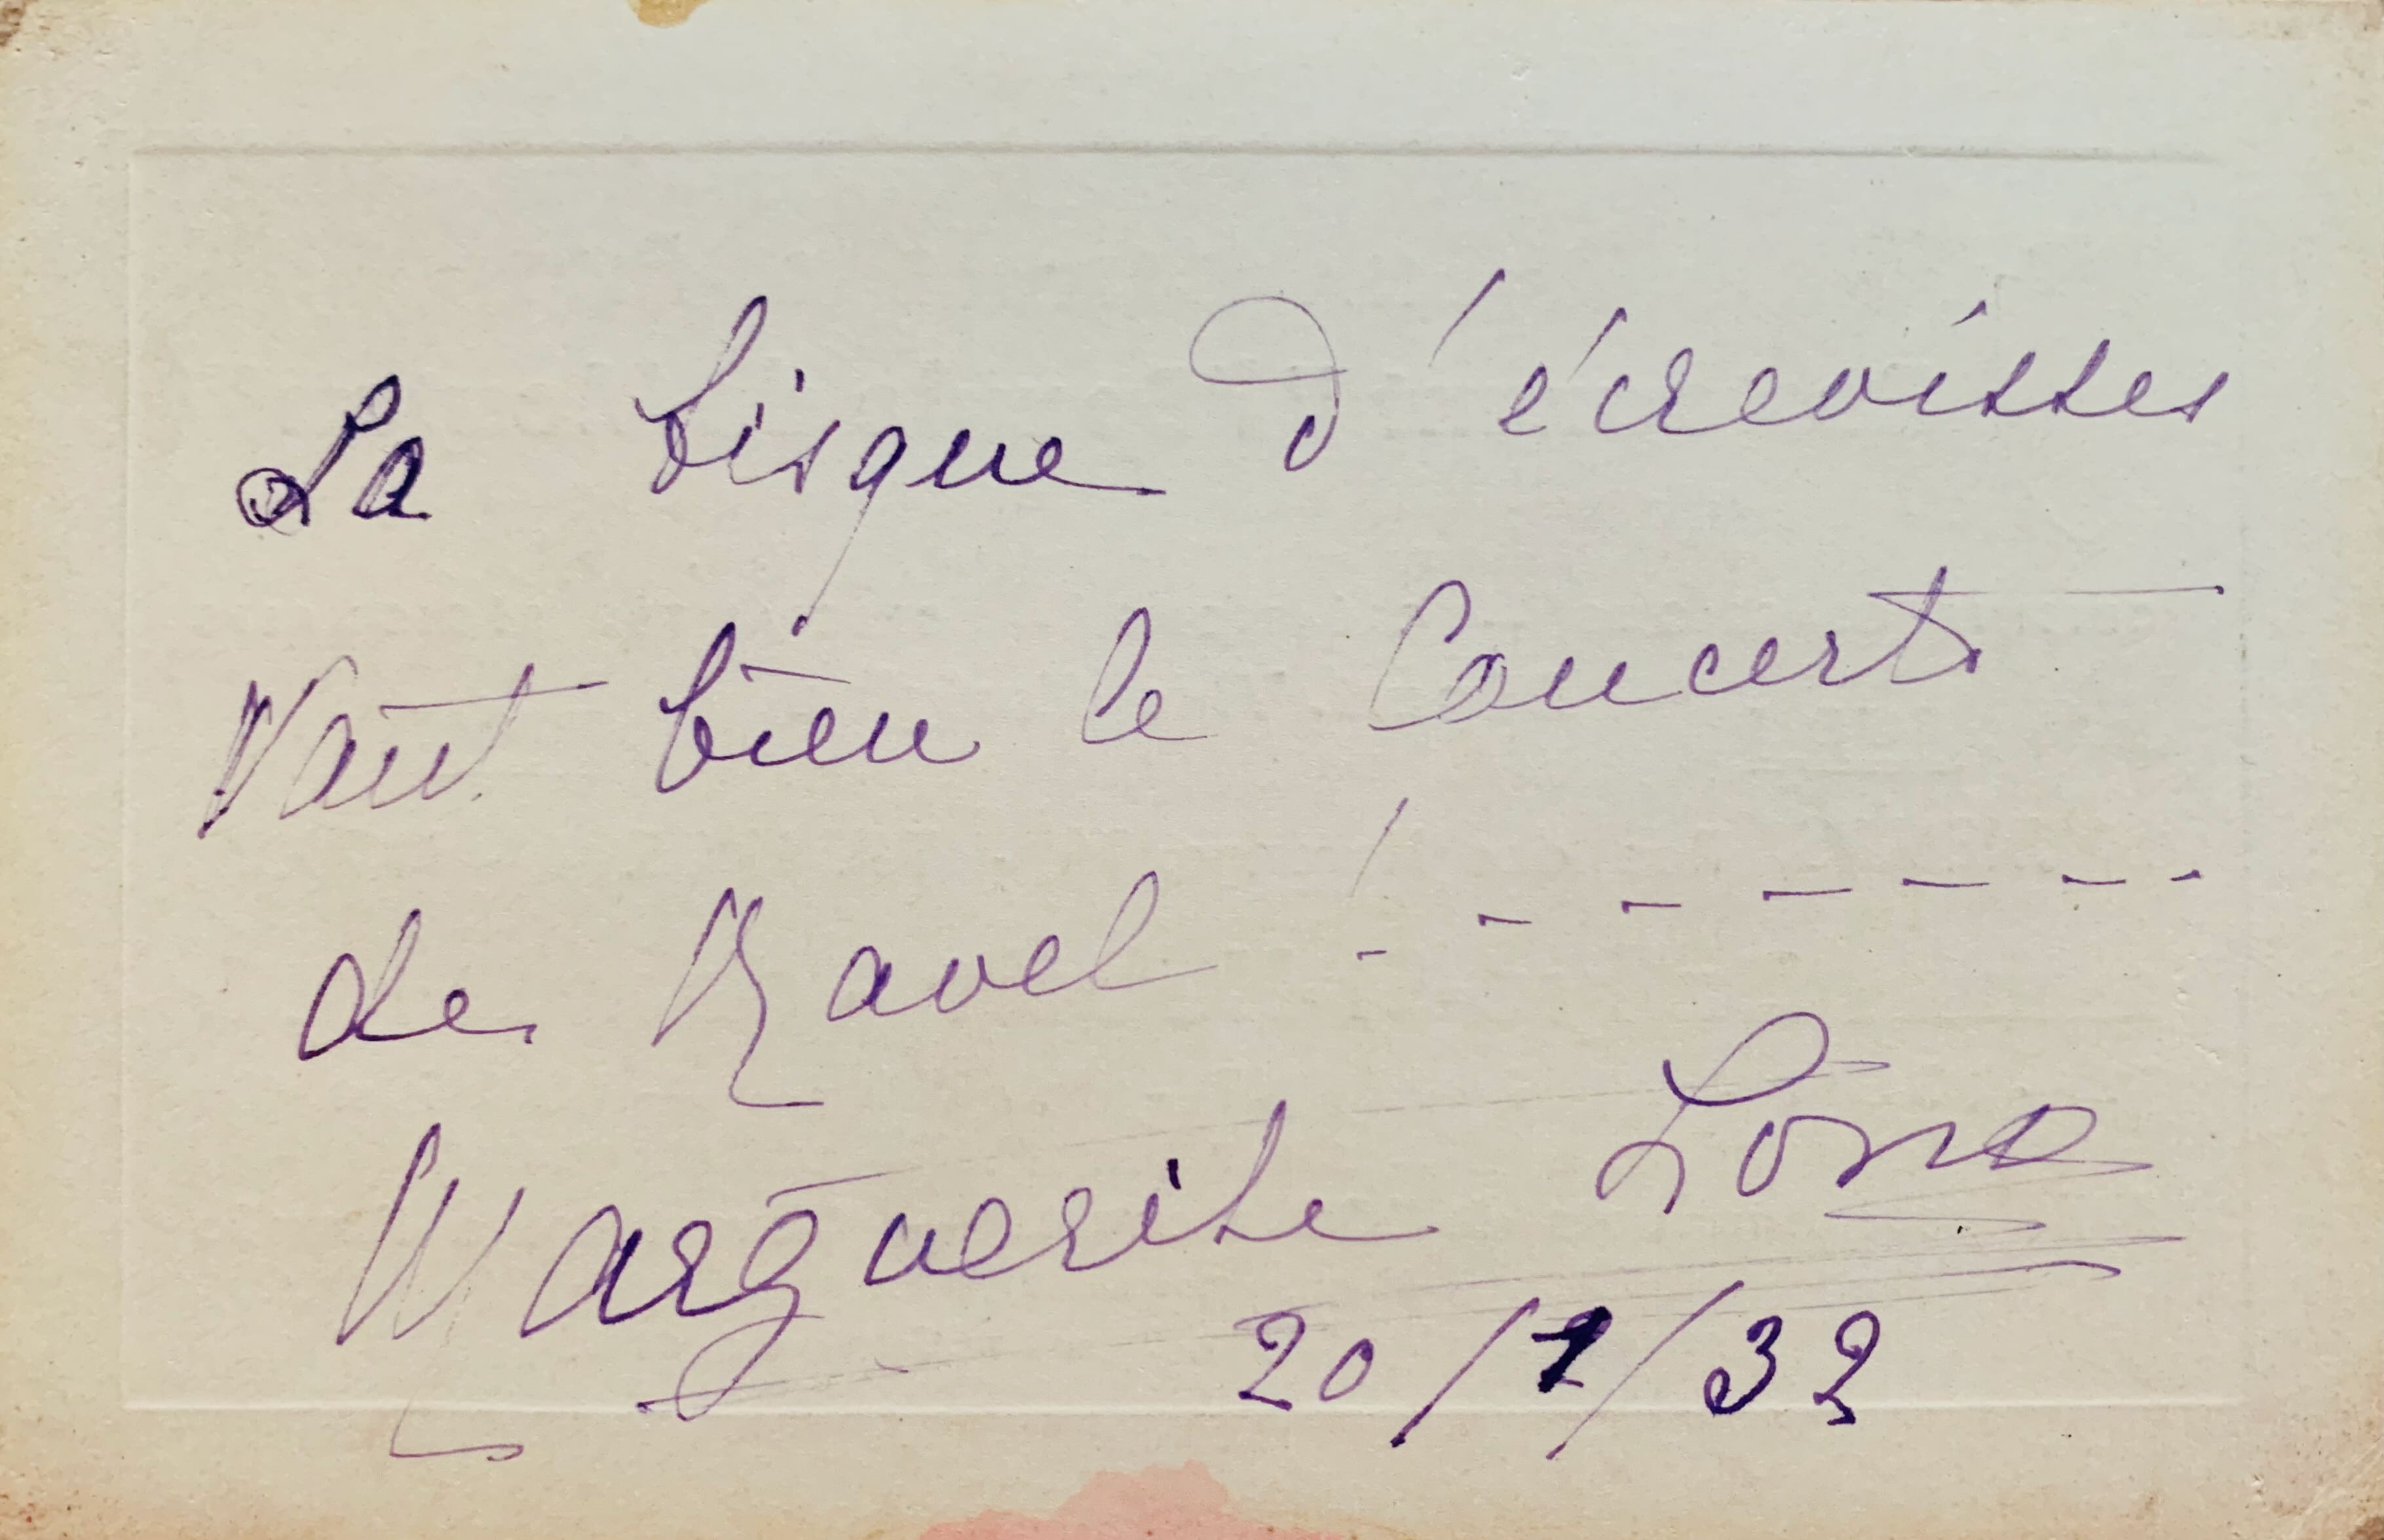 La bisque d'écrevisses
Vaut bien le Concerto
de Ravel !------
Marguerite Long
20/2/32